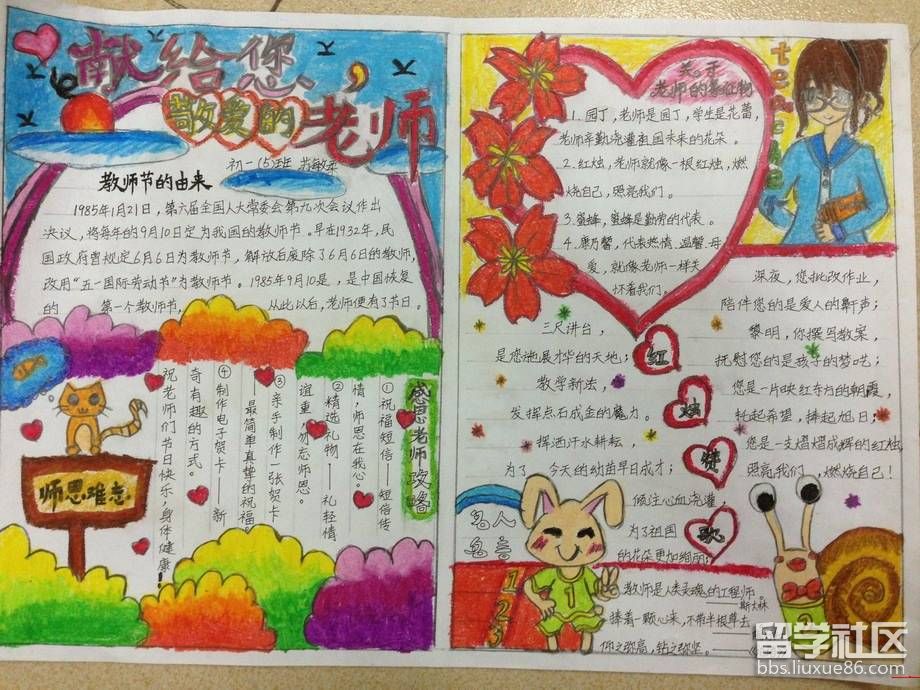 献给您、
敬爱的老师
初一(5)班
教师节的由来
1985年1月21日，第六届全国人大常委会第九次会议作出
决议，将每年的9月10日定为我国的教师节。早在1932年，民
国政府曾规定6月6日为教师节，解放后废除了6月6日的教师，
改用“五一国际劳动节”为教师节。1985年9月10是，是中国恢复
的 第一个教师节， 从此以后，老师便有了节日。
感恩老师攻略
①祝福短信——短信传
情，师恩在我心。
②精选礼物——礼轻情
谊重，勿忘师恩。
③亲手制作一张贺卡
——最简单真挚的祝福
④制作电子贺卡——新
奇有趣的方式。
祝老师们节日快乐、身体健康！
师恩难忘
关于
老师的象征物
1.园丁，老师是园丁，学生是花蕾，
老师辛勤浇灌祖国未来的花朵。
2.红烛，老师就像一根红烛，燃
烧自己，照亮我们。
3.蜜蜂，蜜蜂是勤劳的代表。
4.康乃馨，代表热情、温馨、母
爱，就像老师一样关
怀着我们。
teacher
红烛赞歌
三尺讲台，
是您施展才华的天地；
教学新法，
发挥点石成金的魔力。
挥洒汗水耕耘，
为了 今天的幼苗早日成才；
倾注心血浇灌，
为了祖国
的花朵更加绚丽；
深夜，您批改作业，
陪伴您的是爱人的鼾声；
黎明，你撰写教案，
抚慰您的是孩子的梦呓；
您是一片映红东方的朝霞，
托起希望，捧起旭日；
您是一支熠熠成辉的红烛，
照亮我们，燃烧自己！
名人
名言
1
2
3
1
1
教师是人类灵魂的工程师。
——斯大林
捧着一颗心来，不带半根草去
仰之弥高，钻之弥坚。
留学社区
bbs.liuxue86.com